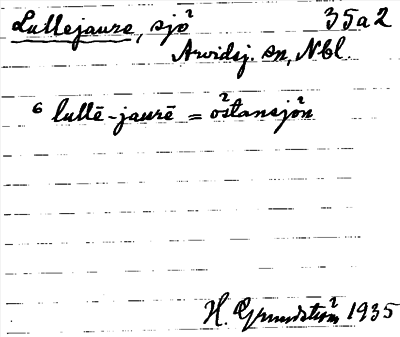 Lullejaure, sjö 35a2
Arvidsj. sn, Nbl.
6 lullē-jaurē = östansjön
H. Grundström 1935